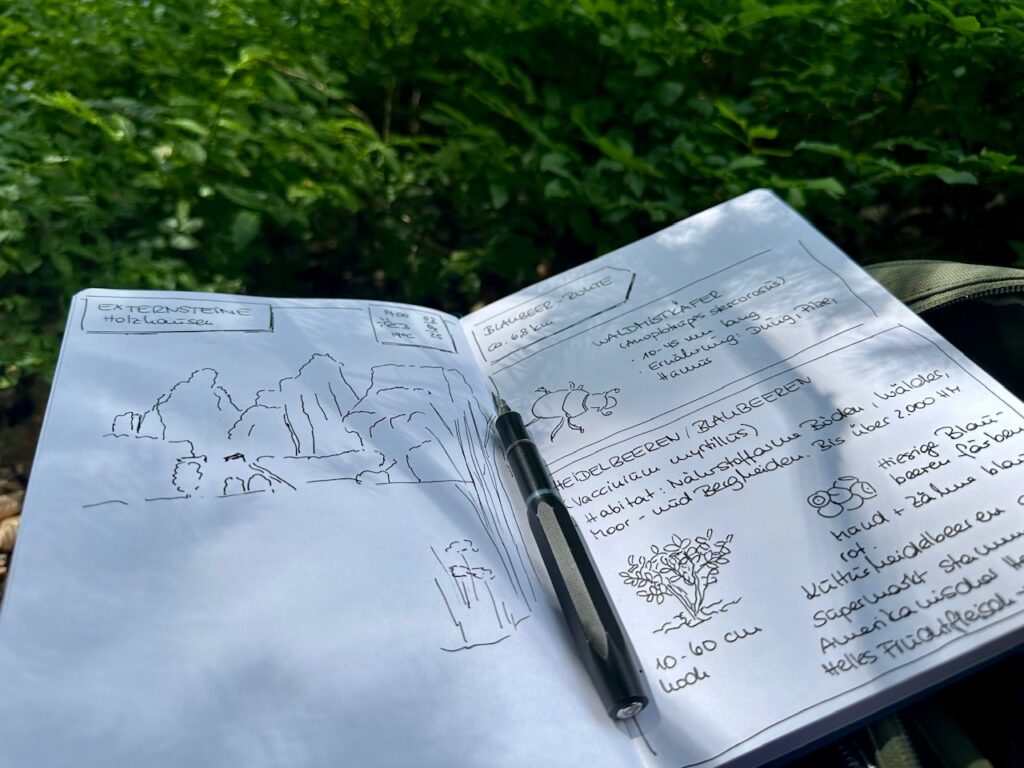 EXTERNSTEINE
Holzhausen
14:00
14°C
BLAUBEER-ROUTE
ca. 6,8 km
WALDMISTKÄFER
(Anoplotrupes stercorosus)
· 10-45 mm lang
· Ernährung: Dung, Pilze,
Humus
HEIDELBEEREN / BLAUBEEREN
(Vaccinium myrtillus)
Habitat: Nährstoffarme Böden, Wälder,
Moor- und Bergheiden. Bis über 2000 HM
Hiesige Blau-
beeren färben
Hand + Zähne blau
rot.
Kulturheidelbeeren
Supermarkt
Amerikanischer
Helles Fruchtfleisch
10-60 cm
hoch